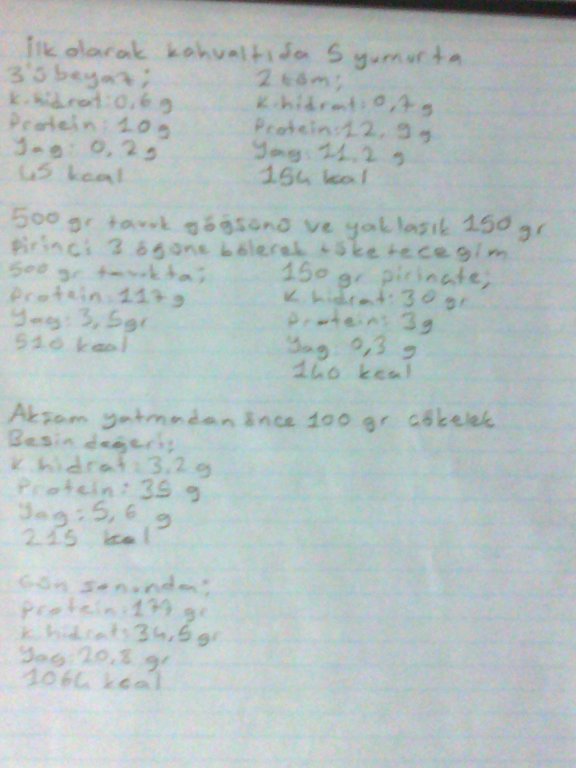 İlk olarak kahvaltıda 5 yumurta
3'ü beyaz; 2 tüm;
K.hidrat:0,6 g K.hidrat:0,7 g
Protein:10 g Protein:12,9 g
Yağ: 0,2 g Yağ:11,2 g
45 kcal 154 kcal
500 gr tavuk göğsünü ve yaklaşık 150 gr
pirinci 3 öğüne bölerek tüketeceğim
500 gr tavukta; 150 gr pirinçte;
Protein:117 g K.hidrat:30 gr
Yağ:3,5gr Protein:3g
510 kcal Yağ:0,3 g
140 kcal
Akşam yatmadan önce 100 gr çökelek
Besin değeri;
K.hidrat:3,2 g
Protein:35 g
Yağ:5,6 g
215 kcal
Gün sonunda;
Protein:177 gr
K.hidrat:34,5gr
Yağ:20,8 gr
1064 kcal